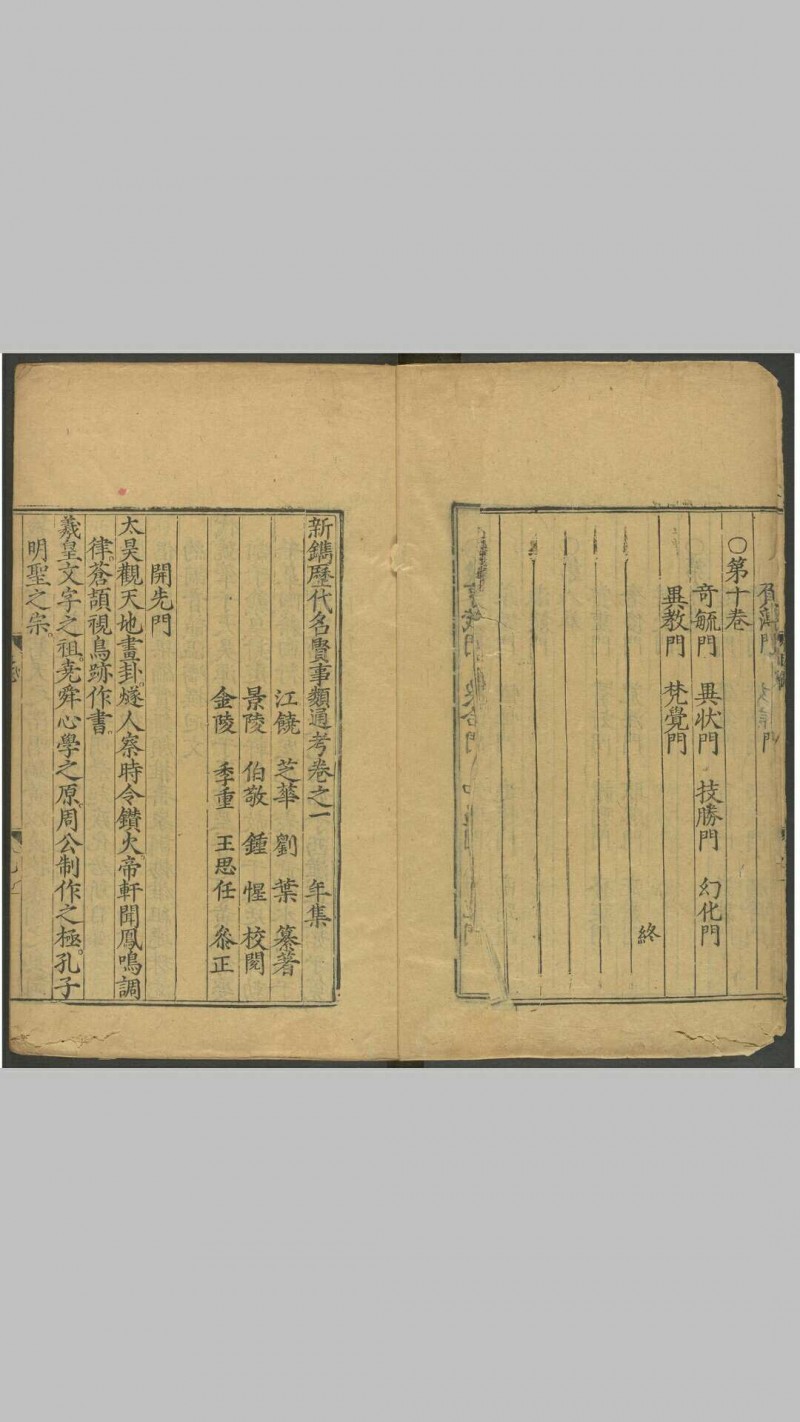 〇第十卷
奇毓門 異状門 技勝門 幻化門
異教門 梵覺門
終
新鐫歷代名賢事類通考卷之一 年集
江饒 芝華 劉葉 纂著
景陵 伯敬 鍾惺 校閱
金陵 季重 王思任 叅正
開先門
太昊觀天地畫卦燧人察時令鑚火帝軒聞鳳鳴調
律蒼頡視鳥跡作書
羲皇文字之祖堯舜心學之原周公制作之極孔子
明聖之宗